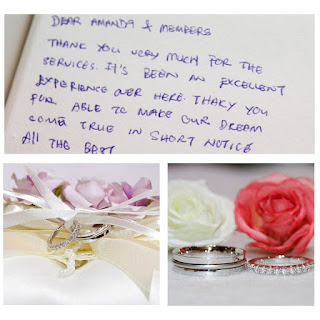 DEAR AMANDA & MEMBERS
THANK YOU VERY MUCH FOR THE
SERVICES. IT'S BEEN AN EXCELLENT
EXPERIENCE OVER HERE. THAKY YOU
FOR ABLE TO MAKE OUR DREAM
COME TRUE IN SHORT NOTICE
All THE BEST